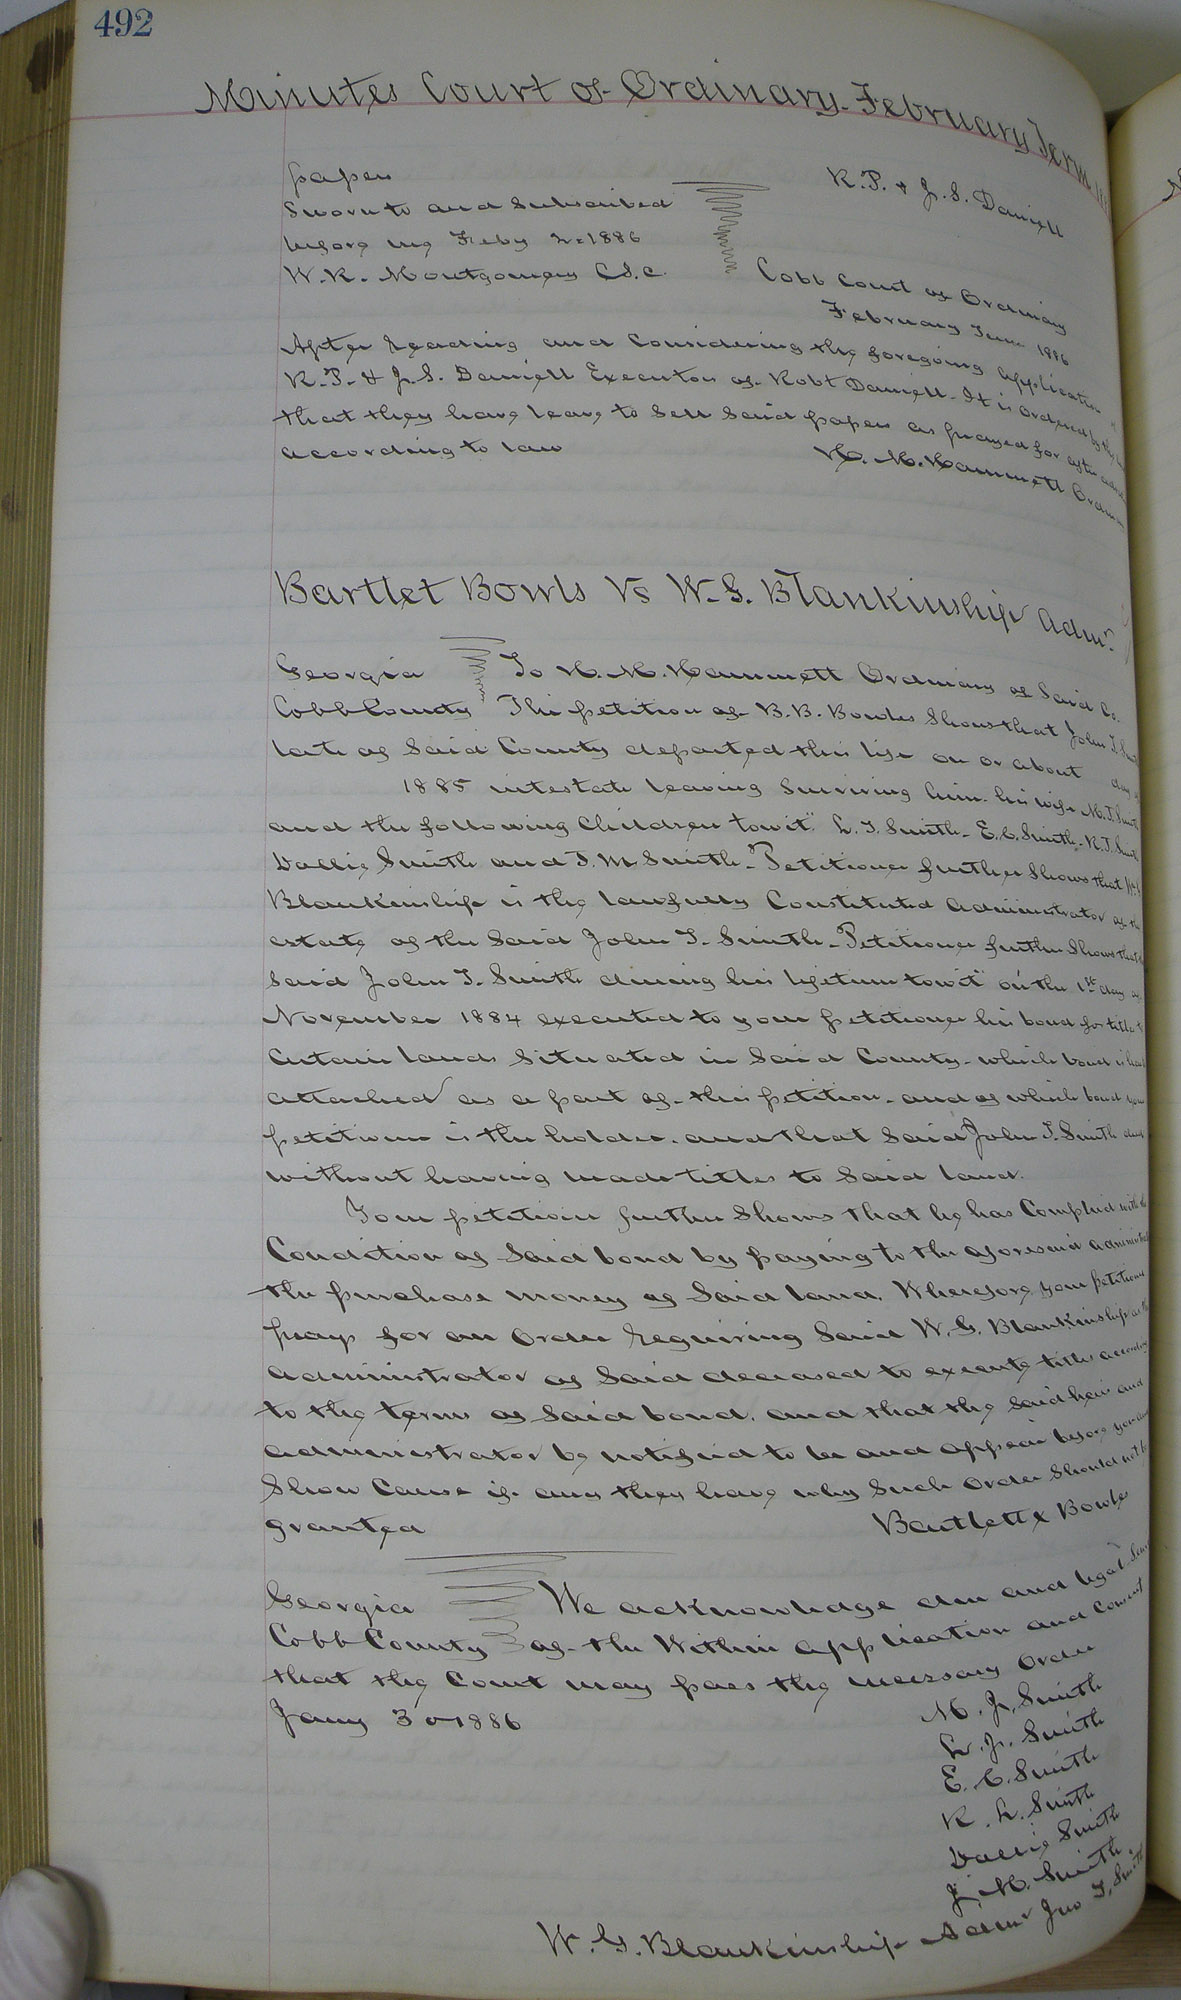 492
Minutes Court of Ordinary. February Term
papers
Sworn to and Subscribed
before me Feby 2=1886
W.R. Montgomery C.S.C.
R.P. & J.S. Daniell
Cobb Court of Ordinary
February Term 1886
After reading and Considering the foregoing application of
R.P. & J.S. Daniell Executors of Robt Daniell. It is Ordered by the
that they have leave to Sell Said papers as prayed for after
according to law
H. M. Hammett
Bartlet Bowls Vs W.G. Blankinship Adm.r
Georgia
Cobb County
To H. M. Hammett Ordinary of Said Co.
The petition of B.B. Bowles Shows that John T. Smith
late of Said County departed this life on or about day of
1885 intestate leaving Surviving him. his wife M.J. Smith
and the following Children towit" L.J. Smith. E.C. Smith.
Dallie Smith and J.M. Smith. Petitioner further Shows that W.G.
Blankinship is the lawfully Constituted administrator of the
estate of the Said John T. Smith. Petitioner further Shows that
Said John T. Smith during his lifetime towit" on the 1st day of
November 1884 executed to your petitioner his bond for title to
Certain lands Situated in Said County. which bond is
attached as a part of this petition. and of which bond your
petitioner is the holder. and that Said John T. Smith died
without having made titles to Said land.
Your petition further Shows that he has Complied with the
Condition of Said bond by paying to the aforesaid administrator
the purchase money of Said land. Wherefore your petitioner
prays for an Order requiring Said W.G. Blankinship as the
administrator of Said deceased to execute titles according
to the terms of Said bond. and that the Said heirs and
administrator be notified to be and appear before you and
Show Cause if any they have why Such Order Should not be
granted
Bartlett & Bowles
Georgia
Cobb County
We acknowledge due and legal
of the Within application and Consent
that the Court may pass the necessary Order
Jany 30 1886
M. J. Smith
L. J. Smith
E. C. Smith
R. L. Smith
Dallie Smith
J. M. Smith
W. G. Blankinship Admr Jno T. Smith